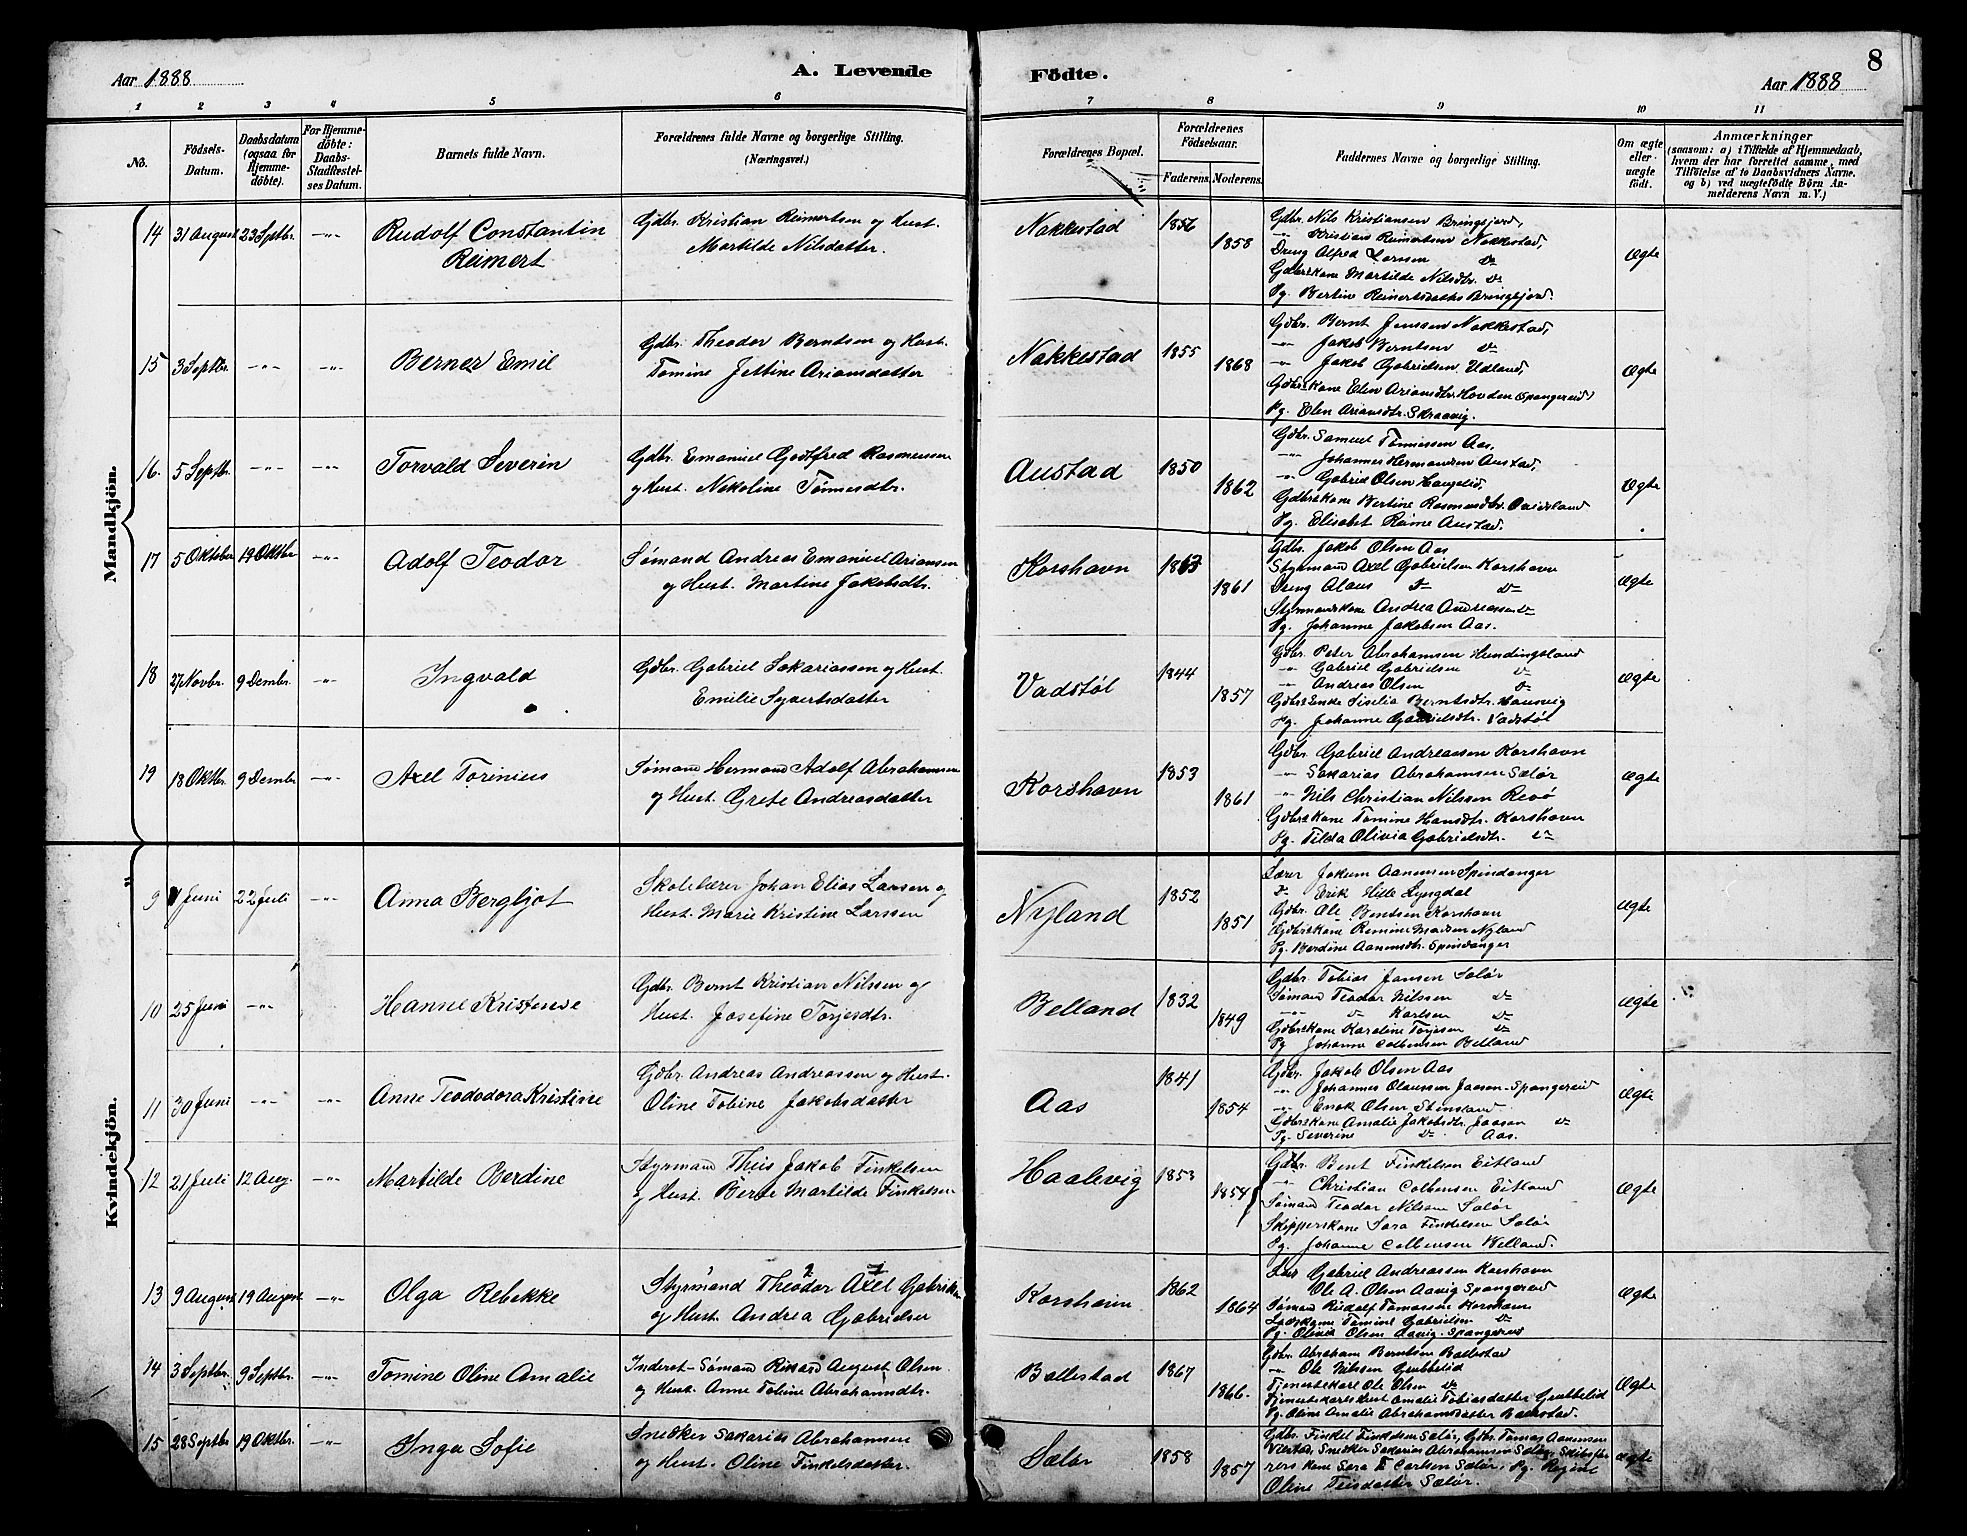 Aar 1888
A. Levende
Födte.
Aar 1888
8
1 2 3 4 5 6 7 8 9 10 11
No.
Födsels-Datum.
Daabsdatum (ogsaa for Hjemme-döbte).
For Hjemme-döbte: Daabs-Stadfæstel-ses Datum.
Barnets fulde Navn.
Forældrenes fulde Navne og borgerlige Stilling.
(Næringsvei.)
Forældrenes Bopæl.
Forældrenes Födselsaar.
Faderens. Moderens.
Faddernes Navne og borgerlige Stilling.
Om ægte eller uægte födt.
Anmærkninger
(saasom: a) i Tilfælde af Hjemmedaab, hvem der har forrettet samme, med Tilföielse af to Daabsvidners Navne, og b) ved uægtefödte Börn An-melderens Navn m. V.)
Mandkjön.
14 31 August 23 Septbr. -"- Rudolf Constantin Reimert
Gdbr. Kristian Reimertsen og Hust.
Martilde Nilsdatter.
Nakkestad 1856 1858
Gdbr. Nils Kristiansen Bringsjord,
-"- Kristian Reimertsen Nakkestad,
Dreng Alfred Larsen do
Gdbrskone Martilde Nilsdtr. do
Pg. Bertine Reimertsdatter Bringsjord.
Ægte
15 3 Septbr. -"- -"- Berner Emil
Gdbr. Theodor Berntsen og Hust.
Tomine Jettine Ariansdatter
Nakkestad 1855 1868
Gdbr. Bernt Jensen Nakkestad,
-"- Jakob Berntsen do
-"- Jakob Gabrielsen Udland,
Gdbrskone Elen Ariansdtr. Hovden (Spangereid)
Pg. Elen Ariansdtr. Skraavig.
Ægte
16. 5 Septbr. -"- -"- Torvald Severin
Gdbr. Emanuel Godtfred Rasmussen
og Hust. Nikoline Tønnesdtr.
Austad 1850 1862
Gdbr. Samuel Tønnessen Aas,
-"- Johannes Hermandsen Austad,
-"- Gabriel Olsen Haugelid,
Gdbrskone Bertine Rasmusdtr.
Pg. Elisabet Reime Austad.
Ægte
17 5 Oktober 19 Oktbr. -"- Adolf Teodor
Sømand Andreas Emanuel Ariansen
og Hust. Martine Jakobsdtr.
Korshavn 1863 1861
Gdbr. Jakob Olsen Aas
Styrmand Axel Gabrielsen Korshavn
Dreng Olaus do do
Styrmandskone Andrea Andreassen do
Pg. Johanne Jakobsen Aas.
Ægte
18 27 Novbr. 9 Dembr. -"- Ingvald
Gdbr. Gabriel Sakariassen og Hust.
Emilie Syvertsdatter
Vadstøl 1844 1857
Gdbr. Peter Abrahamsen Hundingsland
-"- Gabriel Gabrielsen do
-"- Andreas Olsen do
Gdbrs Enke Siselia Berntsdtr. Hausvig
Pg. Johanne Gabrielsdtr. Vadstøl
Ægte
19 18 Oktbr. 9 Dembr. -"- Axel Torinius
Sømand Hermand Adolf Abrahamsen
og Hust. Grete Andreasdatter
Korshavn 1853 1861
Gdbr. Gabriel Andreassen Korshavn
-"- Sakarias Abrahamsen Sælør
-"- Nils Christian Nilssen Revø
Gdbrskone Tomine Hansdtr. Korshavn
Pg. Tilda Olivia Gabrielsdtr. do
Ægte
Kvindekjön.
9 1 Juni 22 Juli -"- Anna Bergljot
Skolelærer Johan Elias Larsen og
Hust. Marie Kristine Larssen
Nyland 1852 1851
Lærer Jokum Aanensen Spindanger
do Erik Hille Lyngdal
Gdbr. Ole Berntsen Korshavn
Gdbrskone Remine Madsen Nyland
Pg. Berdine Aanensdtr. Spindanger
Ægte
10 25 Juni -"- Hanne Kristense
Gdbr. Bernt Kristian Nilssen og
Hust. Josefine Torjesdtr.
Belland 1832 1849
Gdbr. Tobias Jansen Salør
Sømand Teodor Nilssen do
-"- do Karlsen do
Gdbrskone Karoline Torjesen do
Pg. Johanne Colbensen Belland
Ægte
11 30 Juni -"- -"- Anne Teododora Kristine
Gdbr. Andreas Andreassen og Hust.
Oline Tobine Jakobsdatter
Aas 1841 1854
Gdbr. Jakob Olsen Aas
-"- Johannes Olaussen Jaasen Spangereid
-"- Enok Olsen Stensland
Gdbrskone Amalie Jakobsdtr. Jaasen do
Pg. Severine do Aas.
Ægte
12 21 Juli 12 Aug. -"- Martilde Berdine
Styrmand Theis Jakob Finkelsen
og Hust. Berte Martilde Finkelsen
Haalevig 1853 1854
Gdbr. Bent Finkelsen Eitland
-"- Christian Colbensen Eitland
Sømand Teodor Nilssen Salør
Skipperskone Sara Finkelsen Salør
Pg. Johanne Colbensen Belland.
Ægte
13 9 August 19 August -"- Olga Rebekke
2 1
Styrmand Theodor Axel Gabrielsen
og Hust. Andrea Gabrielsen
Korshavn 1862 1864
Gabriel Andreassen Korshavn
Ole A. Olsen Aavig Spangereid
Sømand Rudolf Tomassen Korshavn
Tomine Gabrielsen do
Pg. Olivia Olsen Aavig. Spangereid
Ægte
14 3 Septbr. 9 Septbr. -"- Tomine Oline Amalie
Inderst-Sømand Rikard August Olsen
og Hust. Anne Tobine Abrahamsdtr.
Ballestad 1867 1866.
Gdbr. Abraham Berntsen Ballestad
-"- Ole Nilssen Grubbelid
Tjenestekarl Ole Olsen do
Tjenestekarls Hust Amalie Tobiasdatter Grubbelid
Pg. Oline Amalie Abrahamsdatter Ballestad.
Ægte
15 28 Septbr. 19 Oktbr. -"- Inga Sofie
Snekker Sakarias Abrahamsen
og Hust. Oline Finkelsdatter.
Sælør 1858 1857
Gdbr. Finkel Finkelsen Sælør, Gdbr. Tomas Aanensen
Snekker Sakarias Abrahamsen Sælør, Skibsfø-
rers kone Sara T. Carlsen Sælør, Pg. Regine
Oline Teisdatter Sælør.
Ægte